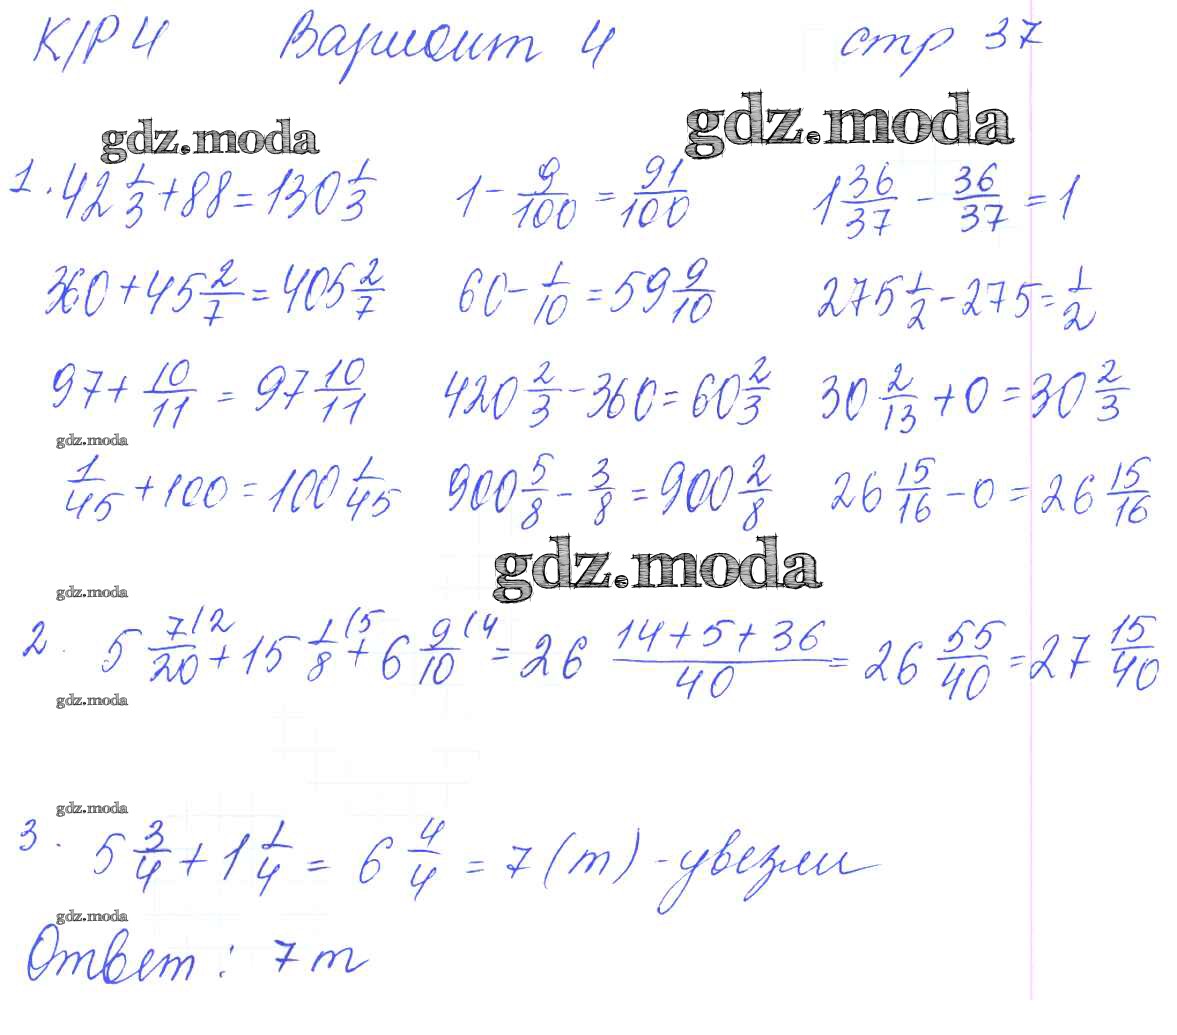 К/Р 4 Вариант 4 стр 37
gdz.moda gdz.moda
1. 42 1/3 + 88 = 130 1/3 1 - 9/100 = 91/100 1 36/37 - 36/37 = 1
360 + 45 2/7 = 405 2/7 60 - 1/10 = 59 9/10 275 1/2 - 275 = 1/2
97 + 10/11 = 97 10/11 420 2/3 - 360 = 60 2/3 30 2/13 + 0 = 30 2/3
gdz.moda
1/45 + 100 = 100 1/45 900 5/8 - 3/8 = 900 2/8 26 15/16 - 0 = 26 15/16
gdz.moda
gdz.moda
2. 5 7/20 (2 + 15 1/8 (5 + 6 9/10 (4 = 26 (14 + 5 + 36)/40 = 26 55/40 = 27 15/40
gdz.moda
gdz.moda
3. 5 3/4 + 1 1/4 = 6 4/4 = 7 (т) - увезли
gdz.moda
Ответ: 7 т